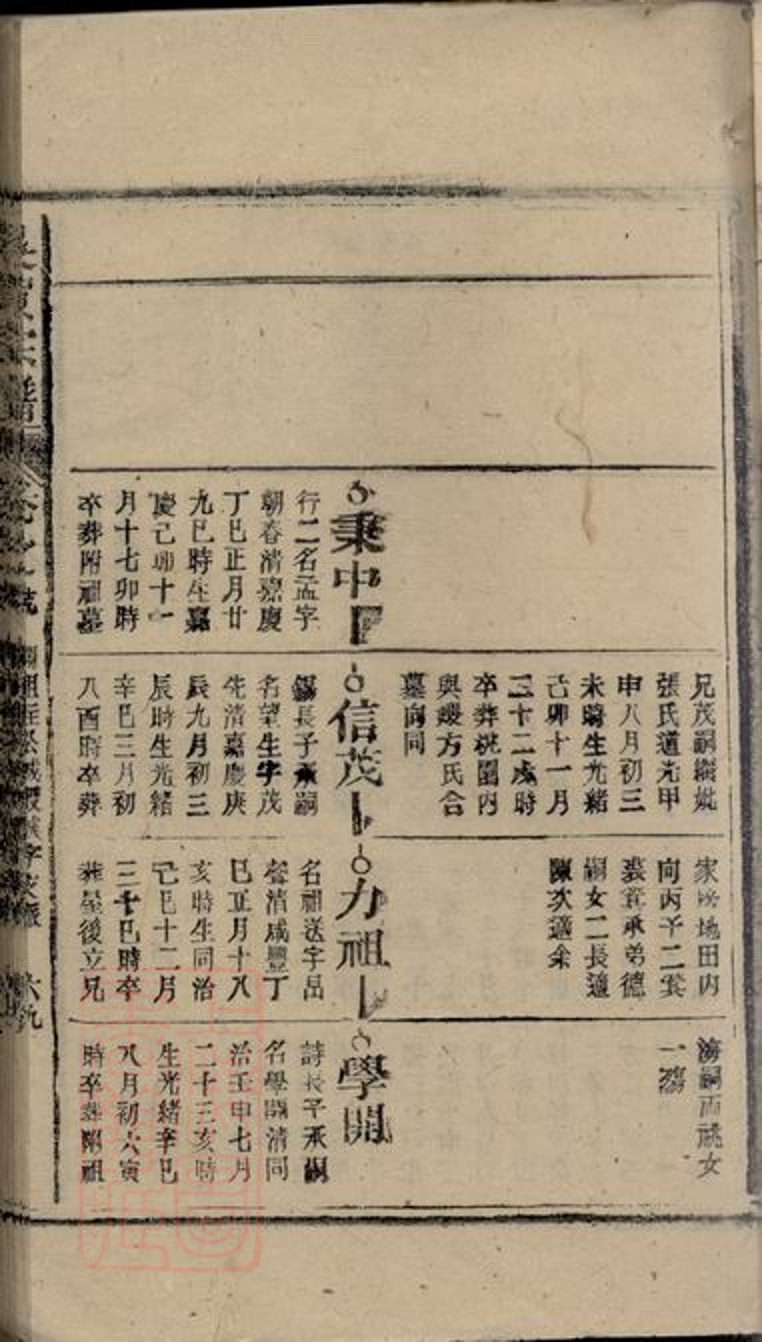 兄茂嗣繼妣
張氏道光甲
申八月初三
未時生光緒
己卯十一月
三十二戌時
卒葬祝園内
與嫒方氏合
墓向同
家 地田内
向丙子二裳
裘箕承弟德
嗣女二長適
陳次適余
嗣而祧女
一
秉中
行二名孟字
朝春清嘉慶
丁巳正月廿
九巳時生嘉
慶己卯十一
月十七卯時
卒葬附祖墓
信茂
錫長子承嗣
名望生字茂
先清嘉慶庚
辰九月初三
辰時生光緒
辛巳三月初
八酉時卒葬
力祖
名祖送字品
馨清咸豐丁
巳正月十八
亥時生同治
己巳十二月
三十巳時卒
葬屋後立兄
學開
詩長子承嗣
名學開清同
治壬申七月
二十三亥時
生光緒辛巳
八月初六寅
時卒葬附祖
宗譜
六九